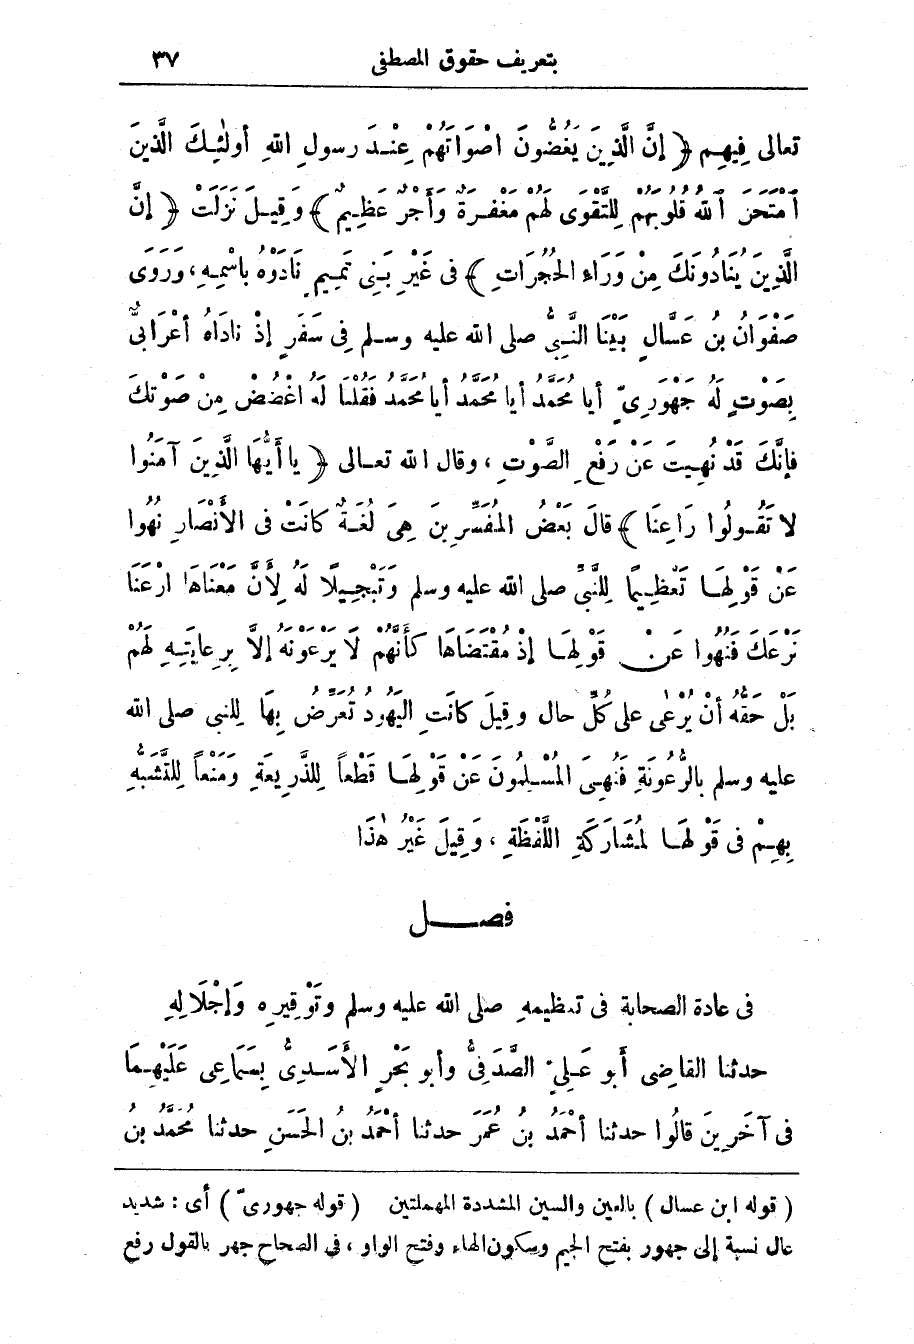 بتعريف حقوق المصطفى ٣٧
تعالى فِيهِم ﴿ إِنَّ الَّذِينَ يَغُضُّونَ اصْوَاتَهُمْ عِنْدَ رسولِ اللهِ أولَٰئِكَ الَّذينَ
آمْتَحَنَ آللهُ قُلُوبَهُمْ لِلتَّقْوَى لَهُمْ مَغْفِرَةٌ وَأَجْرٌ عَظِيمٌ ﴾ وَقِيلَ نَزَلَتْ ﴿ إنَّ
الَّذِينَ يُنَادُونَكَ مِنْ وَرَاءِ الحُجُرَاتِ ﴾ فى غَيْرِ بَنِى تَمِيمٍ نَادَوْهُ باسْمِهِ، وَرَوَى
صَفْوَانُ بنُ عَسَّالٍ بَيْنَا النَّبِىُّ صلى الله عليه وسلم فِى سَفَرٍ إذْ نادَاهُ أعْرَابىٌّ
بِصَوْتٍ لَهُ جَهْوَرِىٍّ أيا مُحَمَّدُ أيا مُحَمَّدُ أيا مُحَمَّدُ فَقُلْنا لَهُ اغْضُضْ مِنْ صَوْتكَ
فإنَّكَ قَدْ نُهِيتَ عَنْ رَفْعِ الصَّوْتِ، وقال الله تعالى ﴿ يا أَيُّهَا الَّذِينَ آمَنُوا
لا تَقُولُوا رَاعِنَا ﴾ قالَ بَعْضُ المُفَسِّرِينَ هِىَ لُغَةٌ كانَتْ فى الأَنْصَارِ نُهُوا
عَنْ قَوْلِهَا تَعْظِيمًا لِلنَّبِىِّ صلى الله عليه وسلم وَتَبْجِيلًا لَهُ لِأَنَّ مَعْنَاهَا ارْعَنَا
نَرْعَكَ فَنُهُوا عَنْ قَوْلِهَا إذْ مُقْتَضَاهَا كأَنَّهُمْ لَا يَرْعَوْنَهُ إلَّا بِرِعايَتِهِ لَهُمْ
بَلْ حَقُّهُ أنْ يُرْعَى على كُلِّ حال وقِيلَ كانَتِ اليَهُودُ تُعَرِّضُ بِهَا لِلنبى صلى الله
عليه وسلم بالرُّعُونَةِ فَنُهِىَ المُسْلِمُونَ عَنْ قَوْلِهَا قَطْعاً لِلذَّرِيعَةِ وَمَنْعاً لِلتَّشَبُّهِ
بِهِمْ فى قَوْلِهَا لمُشَارَكَةِ اللَّفْظَةِ، وَقِيلَ غَيْرُ هٰذَا
فصل
فى عادة الصحابة فى تعظيمهِ صلى الله عليه وسلم وتَوْقِيرِه وَإجْلَالِهِ
حدثنا القاضِى أبو عَلِىٍّ الصَّدَفِىُّ وأبو بَحْرٍ الأَسَدِىُّ بِسَمَاعِى عَلَيْهِمَا
فى آخَرِينَ قالُوا حدثنا أحْمَدُ بنُ عُمَرَ حدثنا أحْمَدُ بنُ الحَسَنِ حدثنا مُحَمَّدُ بنُ
( قوله ابن عسال ) بالعين والسين المشددة المهملتين ( قوله جهورىّ ) أى : شديد
عال نسبة إلى جهور بفتح الجيم وسكون الهاء وفتح الواو، فى الصحاح جهر بالقول رفع